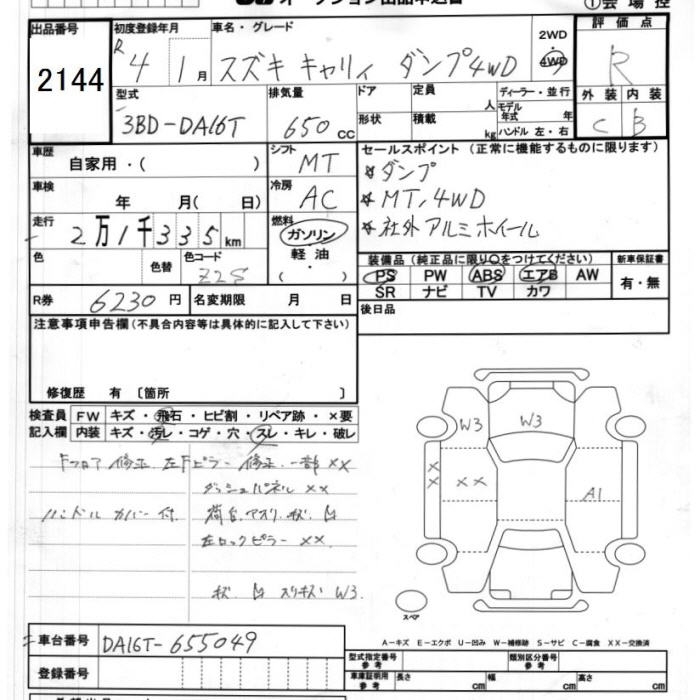 オークション出品申込書
①会場控
出品番号
2144
初度登録年月
R4年1月
車名・グレード
スズキ キャリィ ダンプ4WD
2WD
・
4WD
評価点
R
外装 内装
C B
型式
3BD-DA16T
排気量
650cc
ドア
形状
定員 人
積載 kg
ディーラー・並行
モデル年式 年
ハンドル 左・右
車歴
自家用・( )
シフト
MT
車検
年 月( 日)
冷房
AC
走行
2万1千335km
燃料
ガソリン
軽油
・
( )
色
色替
色コード
Z2S
R券
6230円
名変期限 月 日
セールスポイント(正常に機能するものに限ります)
★ダンプ
★MT,4WD
★社外アルミホイール
装備品(純正品に限り○をつけてください)
PS PW ABS エアB AW
SR ナビ TV カワ
新車保証書
有・無
後日品
注意事項申告欄(不具合内容等は具体的に記入して下さい)
修復歴 有〔箇所 〕
検査員記入欄
FW キズ・飛石・ヒビ割・リペア跡・×要
内装 キズ・汚レ・コゲ・穴・スレ・キレ・破レ
Fフロア 修正 左Fピラー 修正 一部××
ダッシュパネル ××
ハンドル カバー付
荷台
左ロックピラー ××
W3
W3
W3
××
××
A1
スペア
A-キズ E-エクボ U-凹み W-補修跡 S-サビ C-腐食 XX-交換済
車台番号
DA16T-655049
登録番号
型式指定番号
参考
類別区分番号
参考
車庫証明用
参考
長さ cm
幅 cm
高さ cm